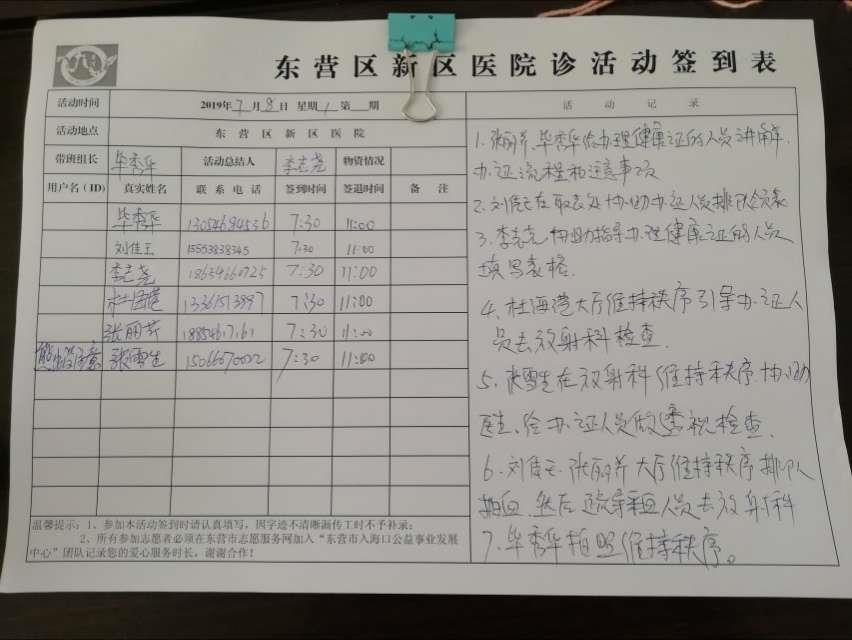 东营区新区医院诊活动签到表
活动时间 2019年7月8日 星期1 第 期
活动地点 东营区新区医院
带班组长 毕秀华 活动总结人 李志尧 物资情况
用户名(ID) 真实姓名 联系电话 签到时间 签退时间 备注
毕秀华 13054684536 7:30 11:00
刘佳王 15553838345 7:30 11:00
李志尧 18634660725 7:30 11:00
7:30 11:00
张丽芹 7:30 11:00
张雪生 7:30 11:00
温馨提示:1、参加本活动签到时请认真填写,因字迹不清晰漏传工时不予补录;
2、所有参加志愿者必须在东营市志愿服务网加入“东营市入海口公益事业发展
中心”团队记录您的爱心服务时长,谢谢合作!
活动记录
1.张丽芹、毕秀华给办理健康证的人员讲解
办证流程和注意事项
2.刘佳王在取表处协助办证人员排队
3.李志尧协助指导办理健康证的人员
填写表格.
4.杜海港大厅维持秩序引导办证人
员去放射科检查.
5.张雪生在放射科维持秩序.协助
医生给办证人员做透视检查.
6.刘佳王.张丽芹大厅维持秩序排队
抽血.然后 人员去放射科
7.毕秀华拍照维持秩序。